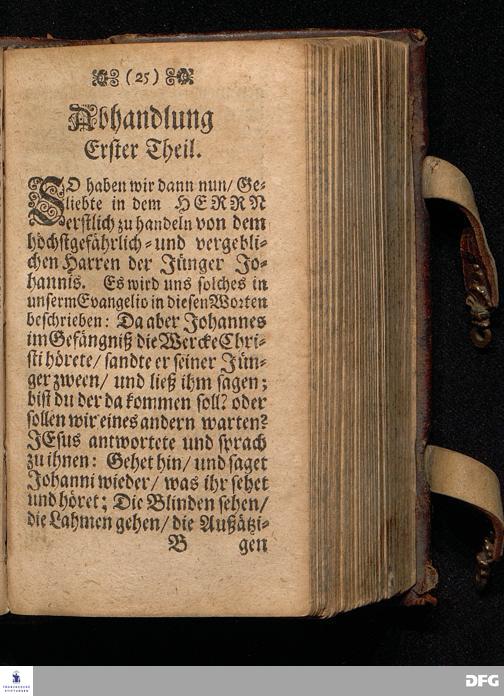 (25)
Abhandlung
Erster Theil.
SO haben wir dann nun/ Ge-
liebte in dem HERRN
erstlich zu handeln von dem
höchstgefährlich- und vergebli-
chen Harren der Jünger Jo-
hannis. Es wird uns solches in
unserm Evangelio in diesen Worten
beschrieben: Da aber Johannes
im Gefängniß die Wercke Chri-
sti hörete/ sandte er seiner Jün-
ger zween/ und ließ ihm sagen;
bist du der da kommen soll? oder
sollen wir eines andern warten?
JEsus antwortete und sprach
zu ihnen: Gehet hin/ und saget
Johanni wieder/ was ihr sehet
und höret; Die Blinden sehen/
die Lahmen gehen/ die Außätzi-
B gen
FRANCKESCHE
STIFTUNGEN
DFG